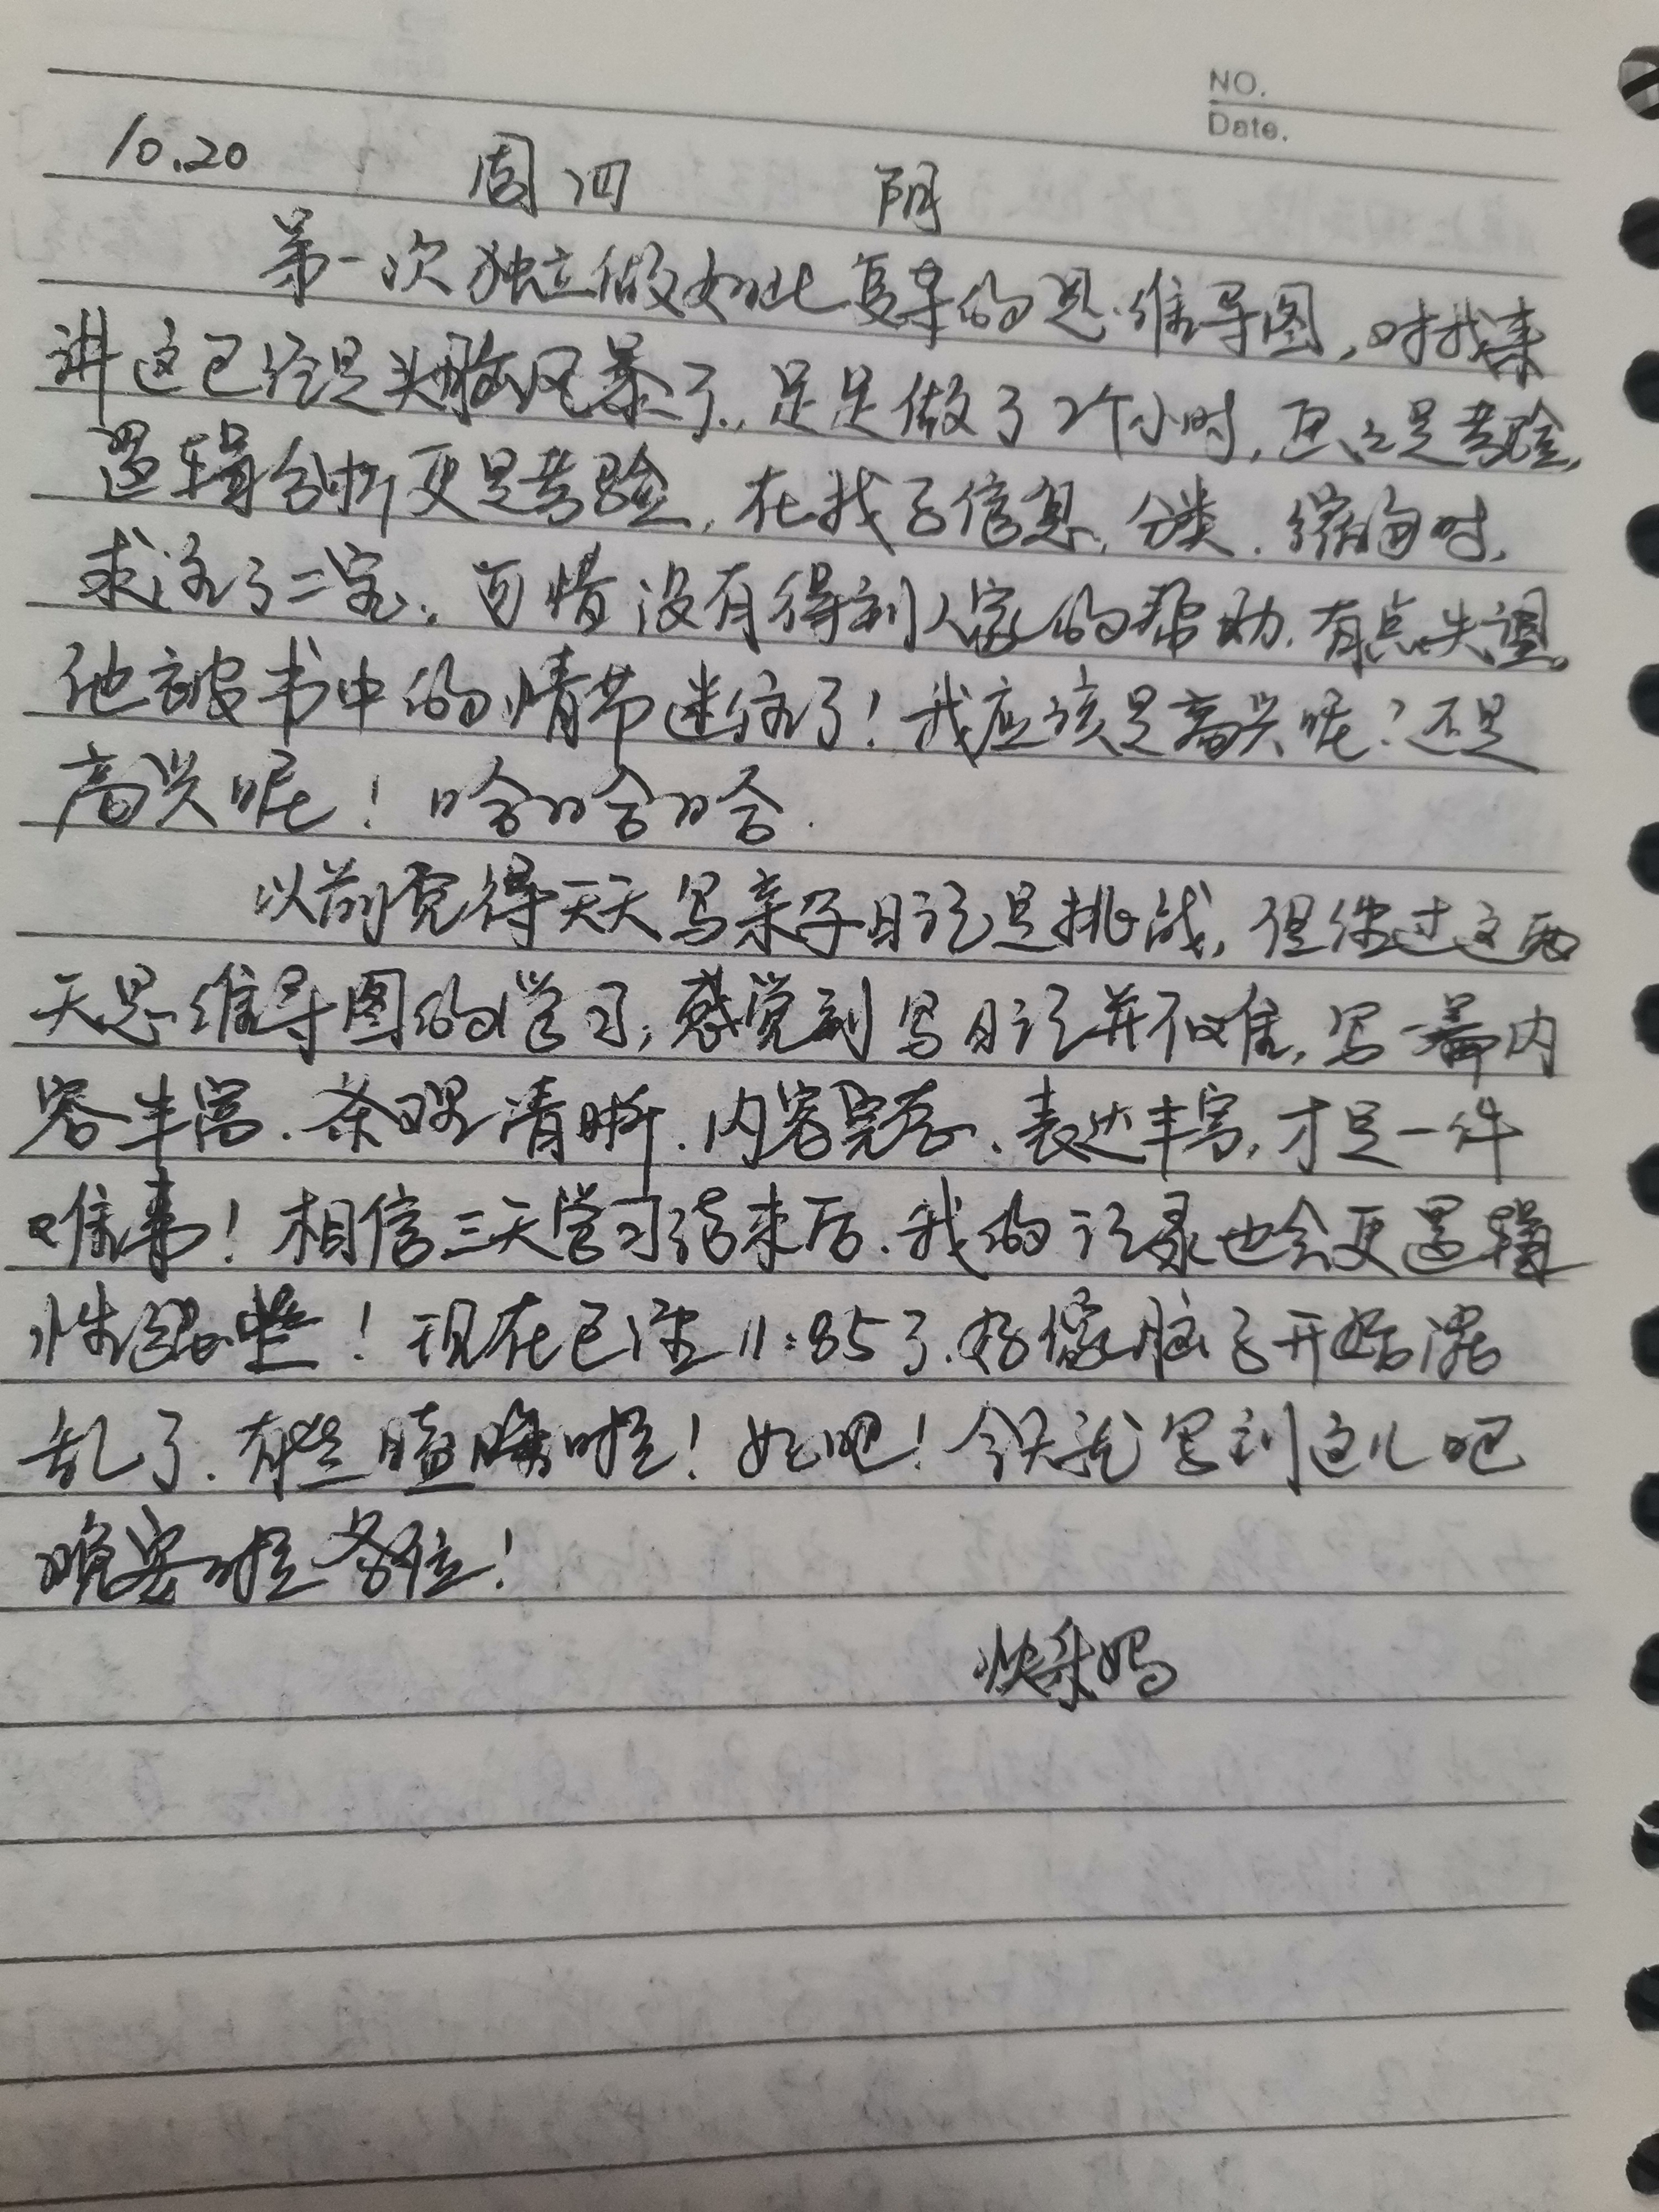 NO.
Date.
10.20 周四 阴
第一次独立做如此复杂的思维导图，对我来
讲这已经是头脑风暴了，足足做了2个小时，是考验，
逻辑分析更是考验，在找子信息、分类、缩句时，
求决了二宝，可惜没有得到人家的帮助，有点失望。
他被书中的情节迷住了！我应该是高兴呢？还是
高兴呢！哈哈哈.
以前觉得天天写亲子日记是挑战，但经过这两
天思维导图的学习，感觉到写日记并不难，写一篇内
容丰富、条理清晰、内容完整、表达丰富，才是一件
难事！相信三天学习结束后，我的记录也会更逻辑
性强些！现在已经11:35了，好像脑子开始混
乱了，有些瞌睡啦！好吧！今天就写到这儿吧
晚安啦各位！
快乐妈